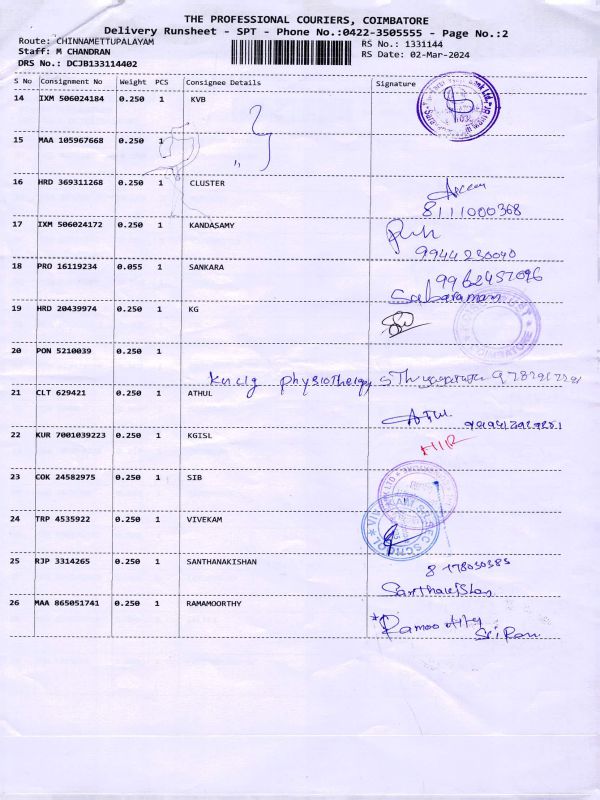 THE PROFESSIONAL COURIERS, COIMBATORE
Delivery Runsheet - SPT - Phone No.:0422-3505555 - Page No.:2
Route: CHINNAMETTUPALAYAM
Staff: M CHANDRAN
DRS No.: DCJB133114402
RS No.: 1331144
RS Date: 02-Mar-2024
S No Consignment No Weight PCS Consignee Details Signature
14 IXM 506024184 0.250 1 KVB
15 MAA 105967668 0.250 1 "
16 HRD 369311268 0.250 1 CLUSTER
8111000368
17 IXM 506024172 0.250 1 KANDASAMY
9944230040
18 PRO 16119234 0.055 1 SANKARA
9962457096
Sabaraman
19 HRD 20439974 0.250 1 KG
20 PON 5210039 0.250 1
physiotherapy
21 CLT 629421 0.250 1 ATHUL
22 KUR 7001039223 0.250 1 KGISL
23 COK 24582975 0.250 1 SIB
24 TRP 4535922 0.250 1 VIVEKAM
25 RJP 3314265 0.250 1 SANTHANAKISHAN
26 MAA 865051741 0.250 1 RAMAMOORTHY